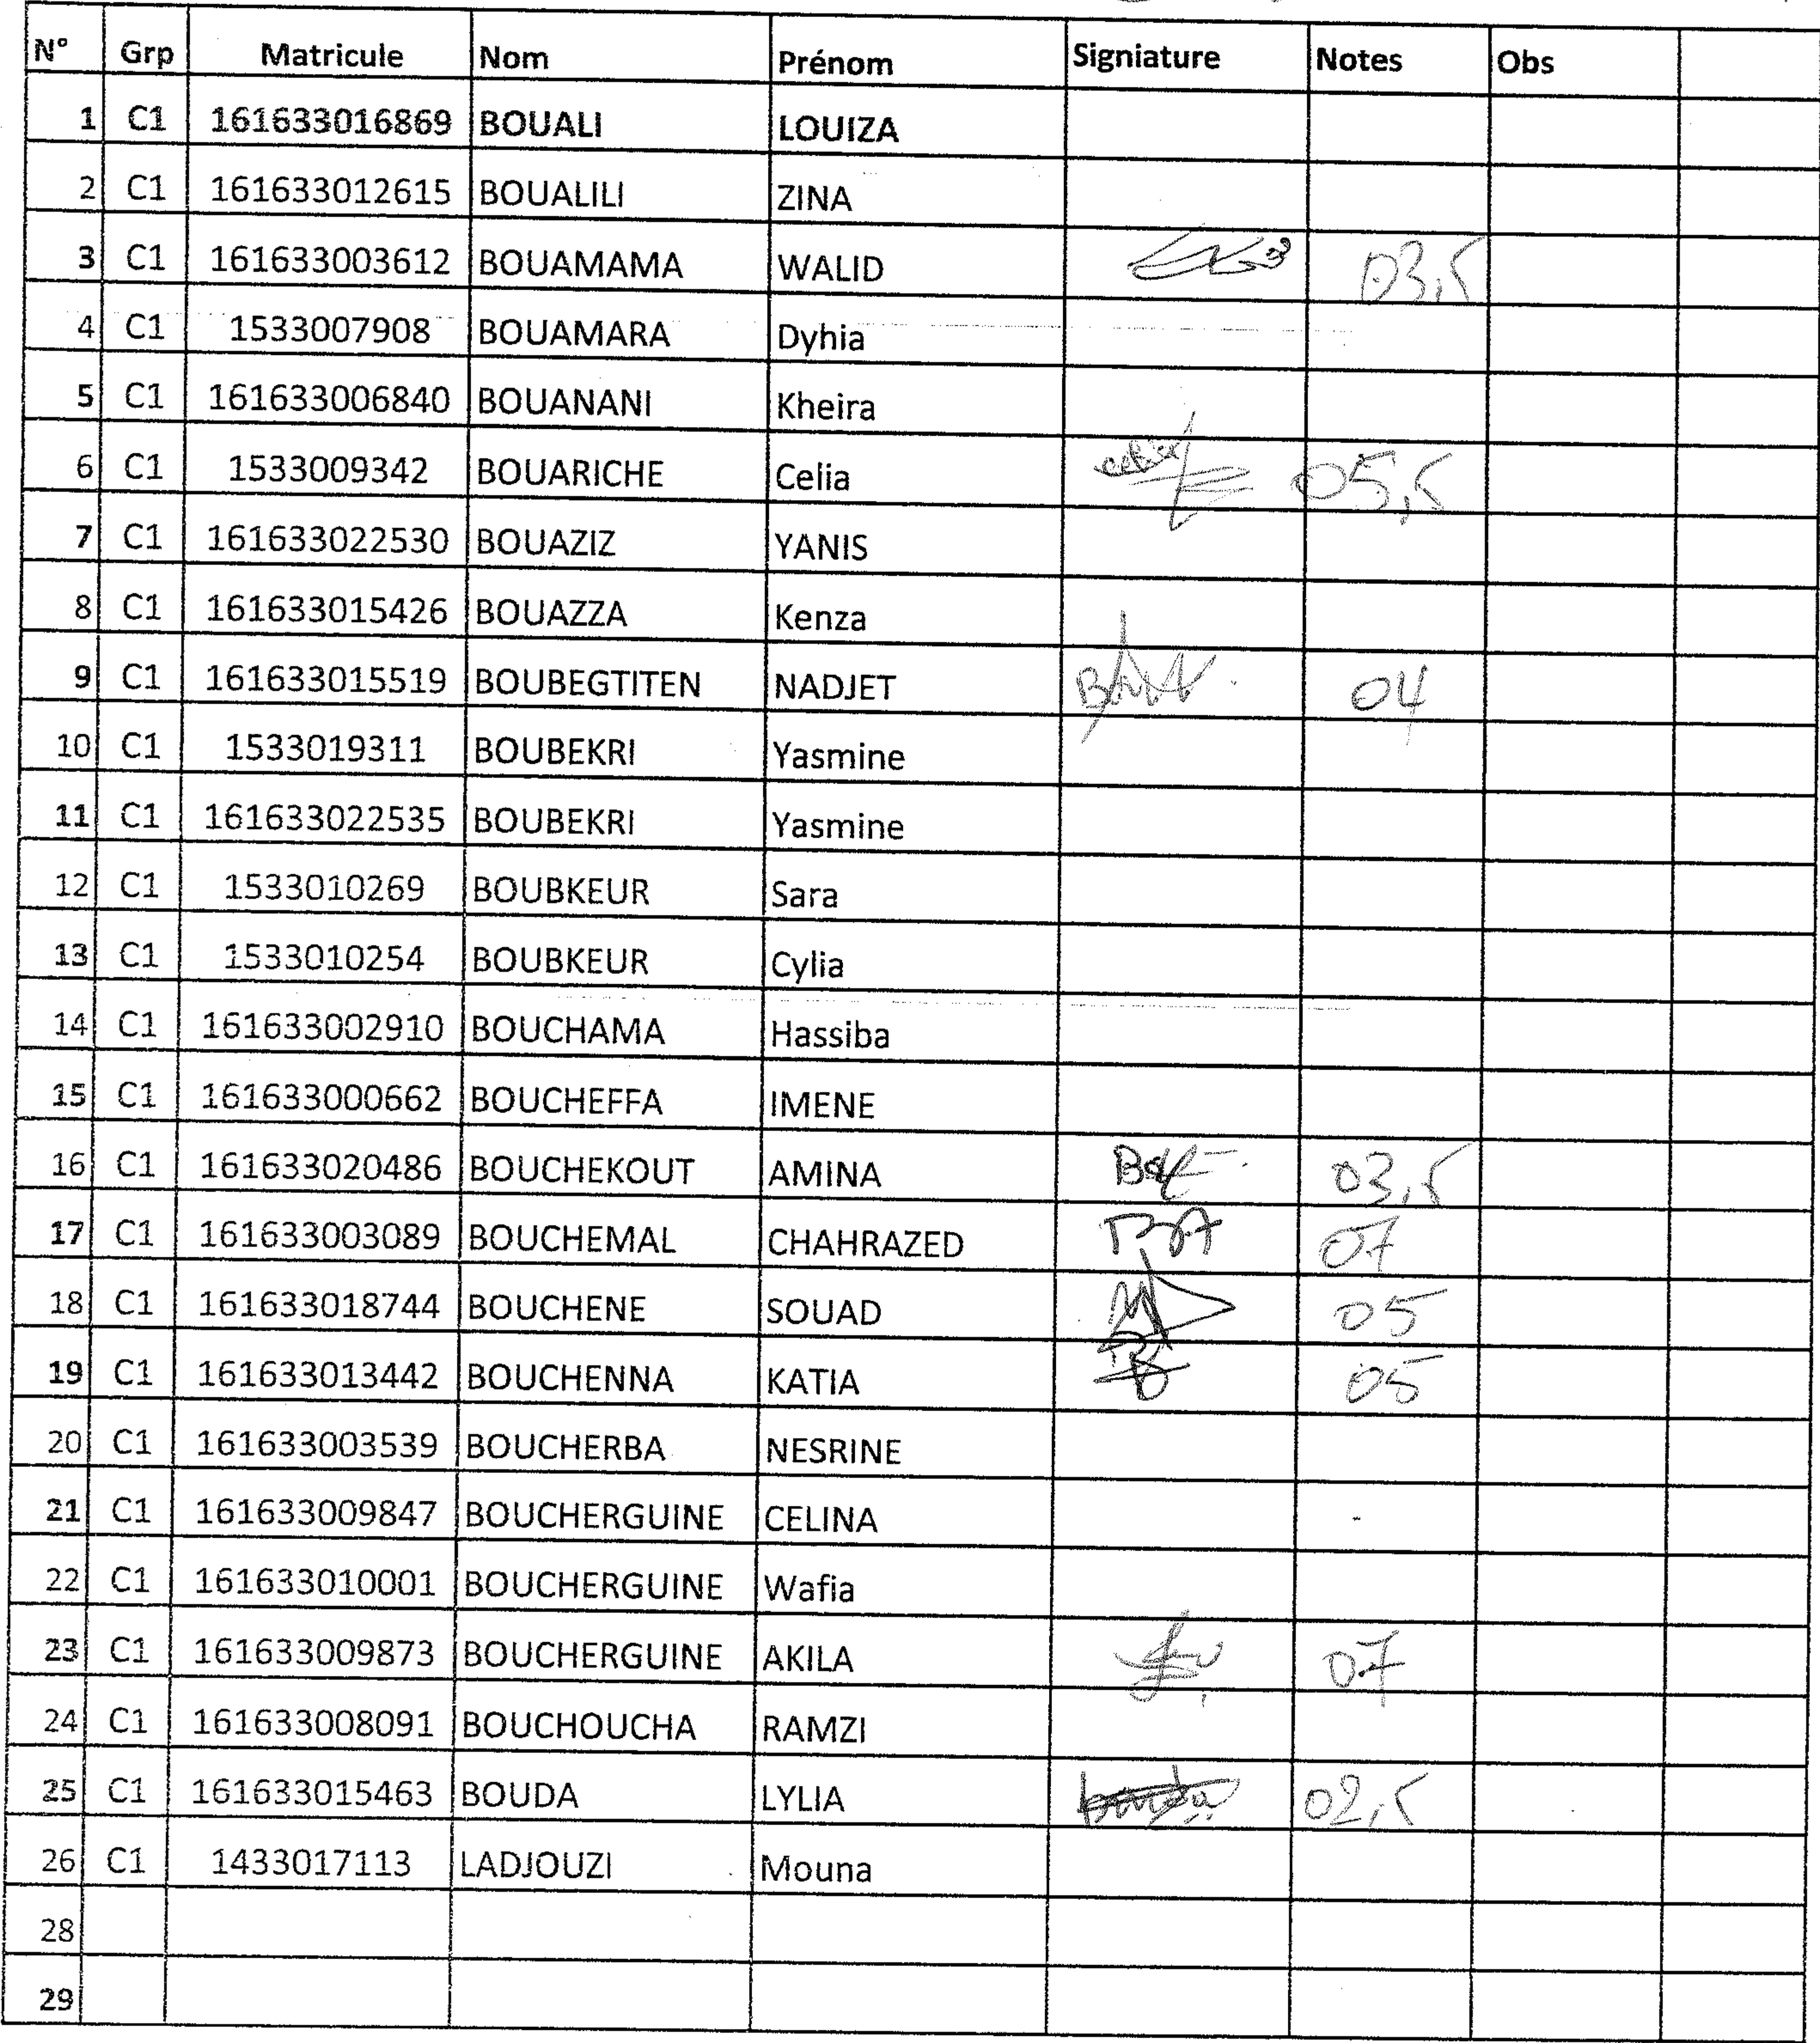 N° Grp Matricule Nom Prénom Signiature Notes Obs
1 C1 161633016869 BOUALI LOUIZA
2 C1 161633012615 BOUALILI ZINA
3 C1 161633003612 BOUAMAMA WALID 03,5
4 C1 1533007908 BOUAMARA Dyhia
5 C1 161633006840 BOUANANI Kheira
6 C1 1533009342 BOUARICHE Celia 05,5
7 C1 161633022530 BOUAZIZ YANIS
8 C1 161633015426 BOUAZZA Kenza
9 C1 161633015519 BOUBEGTITEN NADJET 04
10 C1 1533019311 BOUBEKRI Yasmine
11 C1 161633022535 BOUBEKRI Yasmine
12 C1 1533010269 BOUBKEUR Sara
13 C1 1533010254 BOUBKEUR Cylia
14 C1 161633002910 BOUCHAMA Hassiba
15 C1 161633000662 BOUCHEFFA IMENE
16 C1 161633020486 BOUCHEKOUT AMINA 03,5
17 C1 161633003089 BOUCHEMAL CHAHRAZED 07
18 C1 161633018744 BOUCHENE SOUAD 05
19 C1 161633013442 BOUCHENNA KATIA 05
20 C1 161633003539 BOUCHERBA NESRINE
21 C1 161633009847 BOUCHERGUINE CELINA -
22 C1 161633010001 BOUCHERGUINE Wafia
23 C1 161633009873 BOUCHERGUINE AKILA 07
24 C1 161633008091 BOUCHOUCHA RAMZI
25 C1 161633015463 BOUDA LYLIA bouda 02,5
26 C1 1433017113 LADJOUZI Mouna
28
29